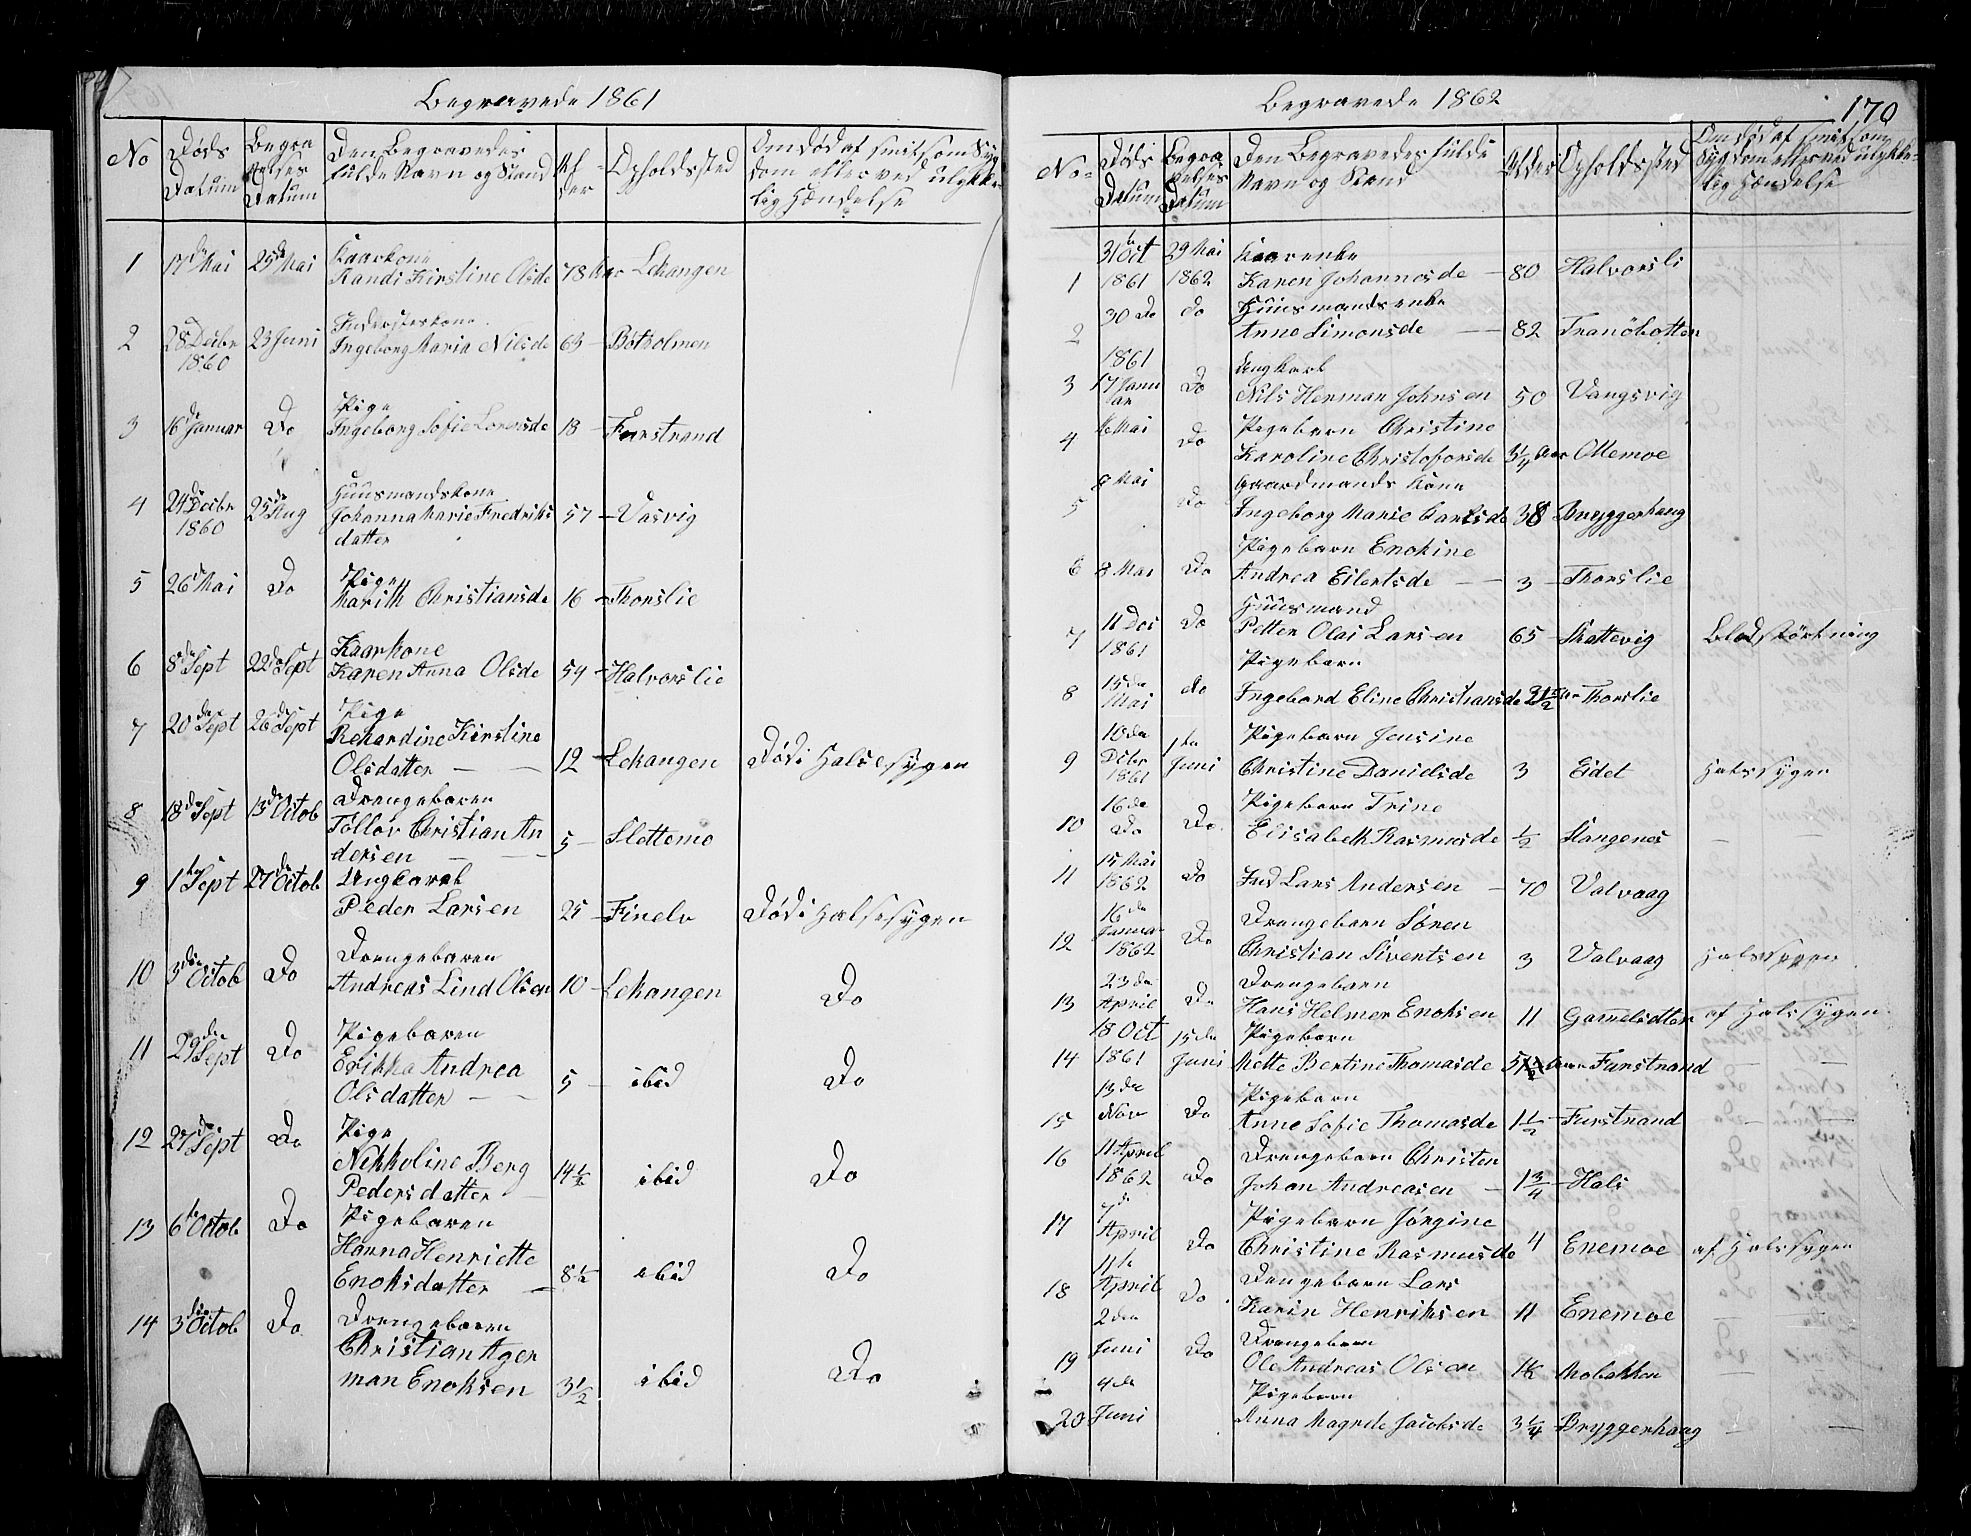 Begravede 1861
No Døds Datum Begravelses Datum Den Begravedes fulde Navn og Stand Alder Opholdssted Om død af smitsom Sygdom eller ved ulykkelig Hændelse
1 17de Mai 25de Mai Kaarkone
Randi Kirstine Olsde 78 Aar Lekangen
2 28de Decbr 1860 23 Juni Inderstekone
Ingeborg Maria Nilsde 63 – Botholmen
3 16de Januar Do Pige
Ingeborg Sofie Lorensde 18 – Furstrand
4 24de Decbr 1860 25de Aug Huusmandskone
Johanna Marie Fredriks
datter 57 – Vasvig
5 26de Mai Do Pige
Marith Christiansde 16 – Thorslie
6 8de Sept 22de Sept Kaarkone
Karen Anna Olsde 54 – Halvorslie
7 20de Sept 26de Sept Pige
Rekardine Kirstine
Olsdatter – 12 – Lekangen Død i Halsesygen
8 18de Sept 13de Octob Drengebarn
Tollov Christian An
dersen – 5 – Slettemo
9 1ste Sept 27de Octob Ungkarl
Peder Larsen 25 – Finelv Død i Halsesygen
10 3die Octob Do Drengebaren
Andreas Lind Olsen 10 – Lekangen Do
11 29de Sept Do Pigebaren
Erikka Andrea
Olsdatter – 5 – ibid Do
12 27de Sept Do Pige
Nikkoline Berg
Pedersdatter 14½ ibid Do
13 6te Octob Do Pigebaren
Hanna Henriette
Enoksdatter – 8½ ibid Do
14 3die Octob Do Drengebaren
Christian Ager
man Enoksen 3½ ibid Do
Begravede 1862
170
No Døds Datum Begravelses Datum Den Begravedes fulde Navn og Stand Alder Opholdssted Om død af smitsom Sygdom eller ved ulykkelig Hændelse
1 31te Oct 1861 29 Mai 1862 Kaarenke
Karen Johannesde – 80 Halvorsli
2 30 Do 1861 do Huusmandsenke
Anne Simonsde – 82 Tranöbotten
3 17 Januar Do Ungkarl
Nils Herman Johnsen 50 Vangsvig
4 Mai Do Pigebarn Christine
Karoline Christofersde 3¼ Aar Ottemoe
5 8 Mai Do Gaardmands Kone
Ingeborg Marie Carlsde 38 Bryggerhaug
6 8 Mai Do Pigebarn Enokine
Andrea Eilertsde – 3 – Thorslie
7 11 Dec 1861 Do Huusmand
Petter Olai Larsen 65 – Skattevig Blodstörtning
8 15de Mai do Pigebarn
Ingebord Eline Christiansde 2½ Aar Thorslie
9 10de Decbr 1861 1te Juni Pigebarn Jensine
Christine Danielsde 3 Eidet Halssygen
10 16de Do Do Pigebarn Trine
Elisabeth Rasmusde ½ Stangenes –
11 15 Mai 1862 Do Ind Lars Andersen – 70 Valvaag
12 16de Januar 1862 Do Drengebarn Sören
Christian Siventsen 3 Valvaag Halssygen
13 23de April Do Drengebarn
Hans Helmer Enoksen 11 Gammelsetter af Halssygen
14 18 Oct 1861 15de Juni Pigebarn
Mette Bertine Thomasde 5½ Aar Furstrand –
15 13de Nov Do Pigebarn
Anne Sofie Thomasde 1½ – Furstrand –
16 11 April 1862 Do Drengebarn Christen
Johan Andreasen – 1¾ – Hals
17 7de April Do Pigebarn Jörgine
Christine Rasmusde 4 Enemoe af Halssygen
18 11te April Do Drengebarn Lars
Karin Henriksen 11 Enemoe –
19 2den Juni Do Drengebarn
Ole Andreas Olsen Mobakken –
20 4de Juni Pigebarn
Anna Magrete Jacobsde 3¼ Bryggerhaug –